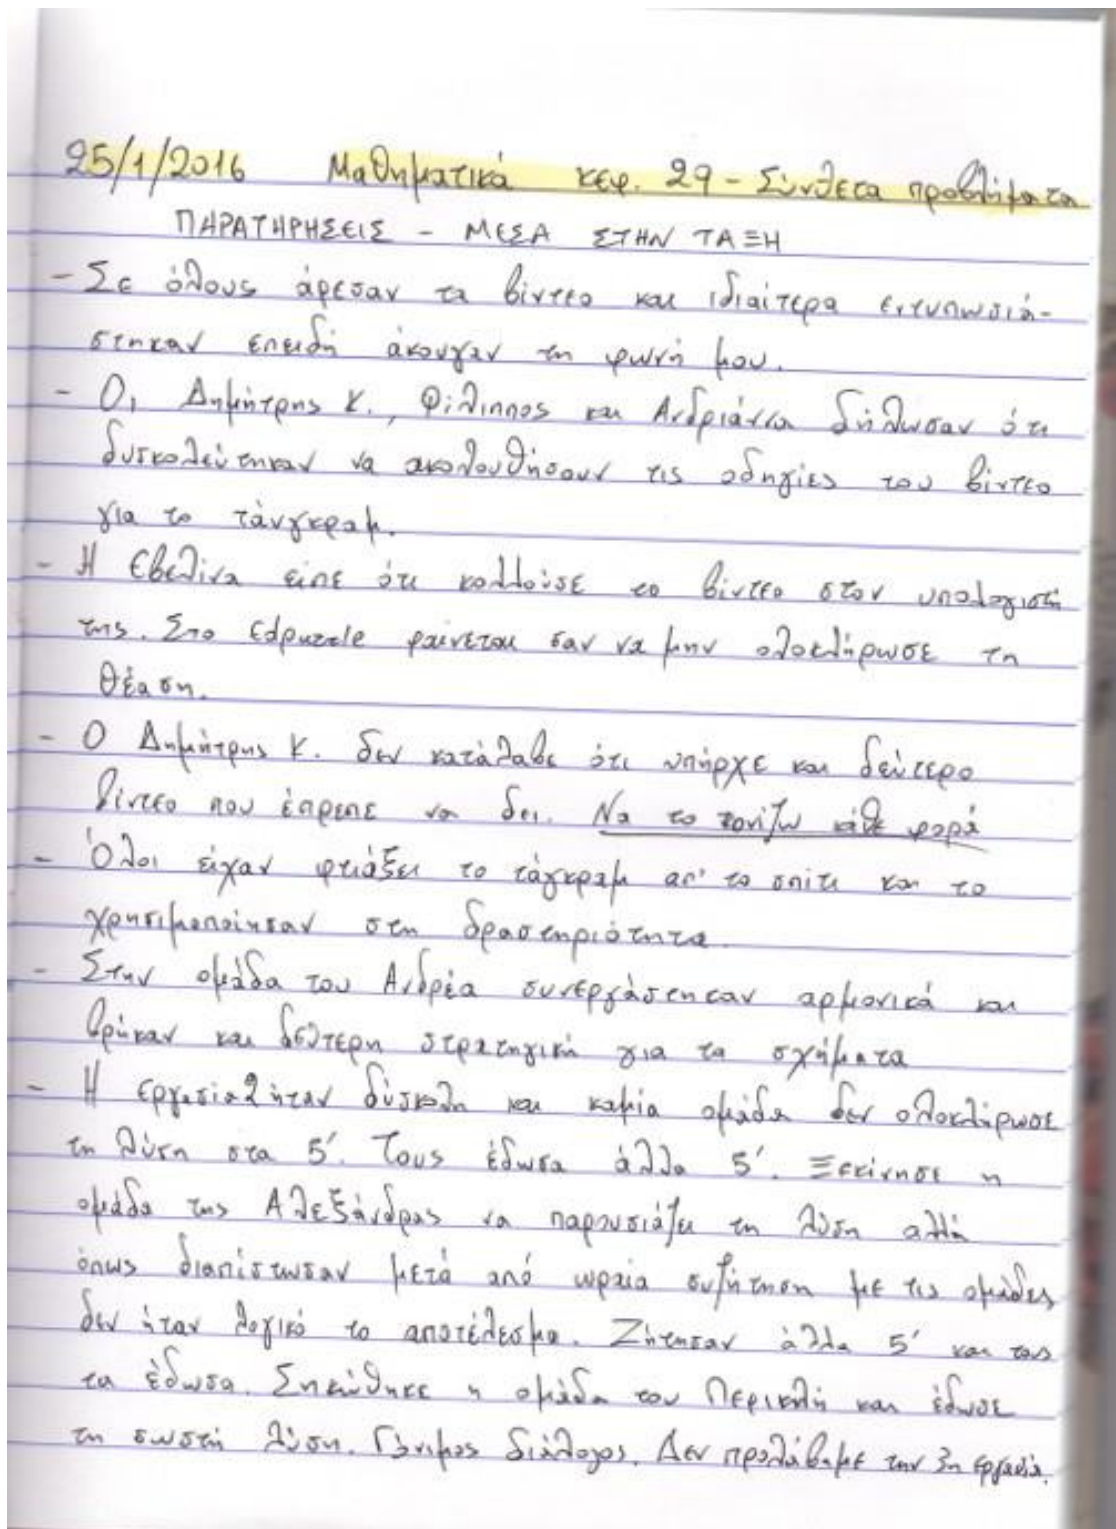 25/1/2016 Μαθηματικά κεφ. 29 - Σύνθετα προβλήματα
ΠΑΡΑΤΗΡΗΣΕΙΣ - ΜΕΣΑ ΣΤΗΝ ΤΑΞΗ
- Σε όλους άρεσαν τα βίντεο και ιδιαίτερα εντυπωσιά-
στηκαν επειδή άκουγαν τη φωνή μου.
- Οι Δημήτρης Κ., Φίλιππος και Ανδριάννα δήλωσαν ότι
δυσκολεύτηκαν να ακολουθήσουν τις οδηγίες του βίντεο
για το τάνγκραμ.
- Η Εβελίνα είπε ότι κολλούσε το βίντεο στον υπολογιστή
της. Στο Edpuzzle φαίνεται σαν να μην ολοκλήρωσε τη
θέαση.
- Ο Δημήτρης Κ. δεν κατάλαβε ότι υπήρχε και δεύτερο
βίντεο που έπρεπε να δει. Να το τονίζω κάθε φορά
- Όλοι είχαν φτιάξει το τάγκραμ απ' το σπίτι και το
χρησιμοποίησαν στη δραστηριότητα.
- Στην ομάδα του Ανδρέα συνεργάστηκαν αρμονικά και
βρήκαν και δεύτερη στρατηγική για τα σχήματα
- Η εργασία 2 ήταν δύσκολη και καμία ομάδα δεν ολοκλήρωσε
τη λύση στα 5'. Τους έδωσα άλλα 5'. Ξεκίνησε η
ομάδα της Αλεξάνδρας να παρουσιάζει τη λύση αλλά
όπως διαπίστωσαν μετά από ωραία συζήτηση με τις ομάδες
δεν ήταν λογικό το αποτέλεσμα. Ζήτησαν άλλα 5' και τους
τα έδωσα. Σηκώθηκε η ομάδα του Περικλή και έδωσε
τη σωστή λύση. Γόνιμος διάλογος. Δεν προλάβαμε την 3η εργασία.